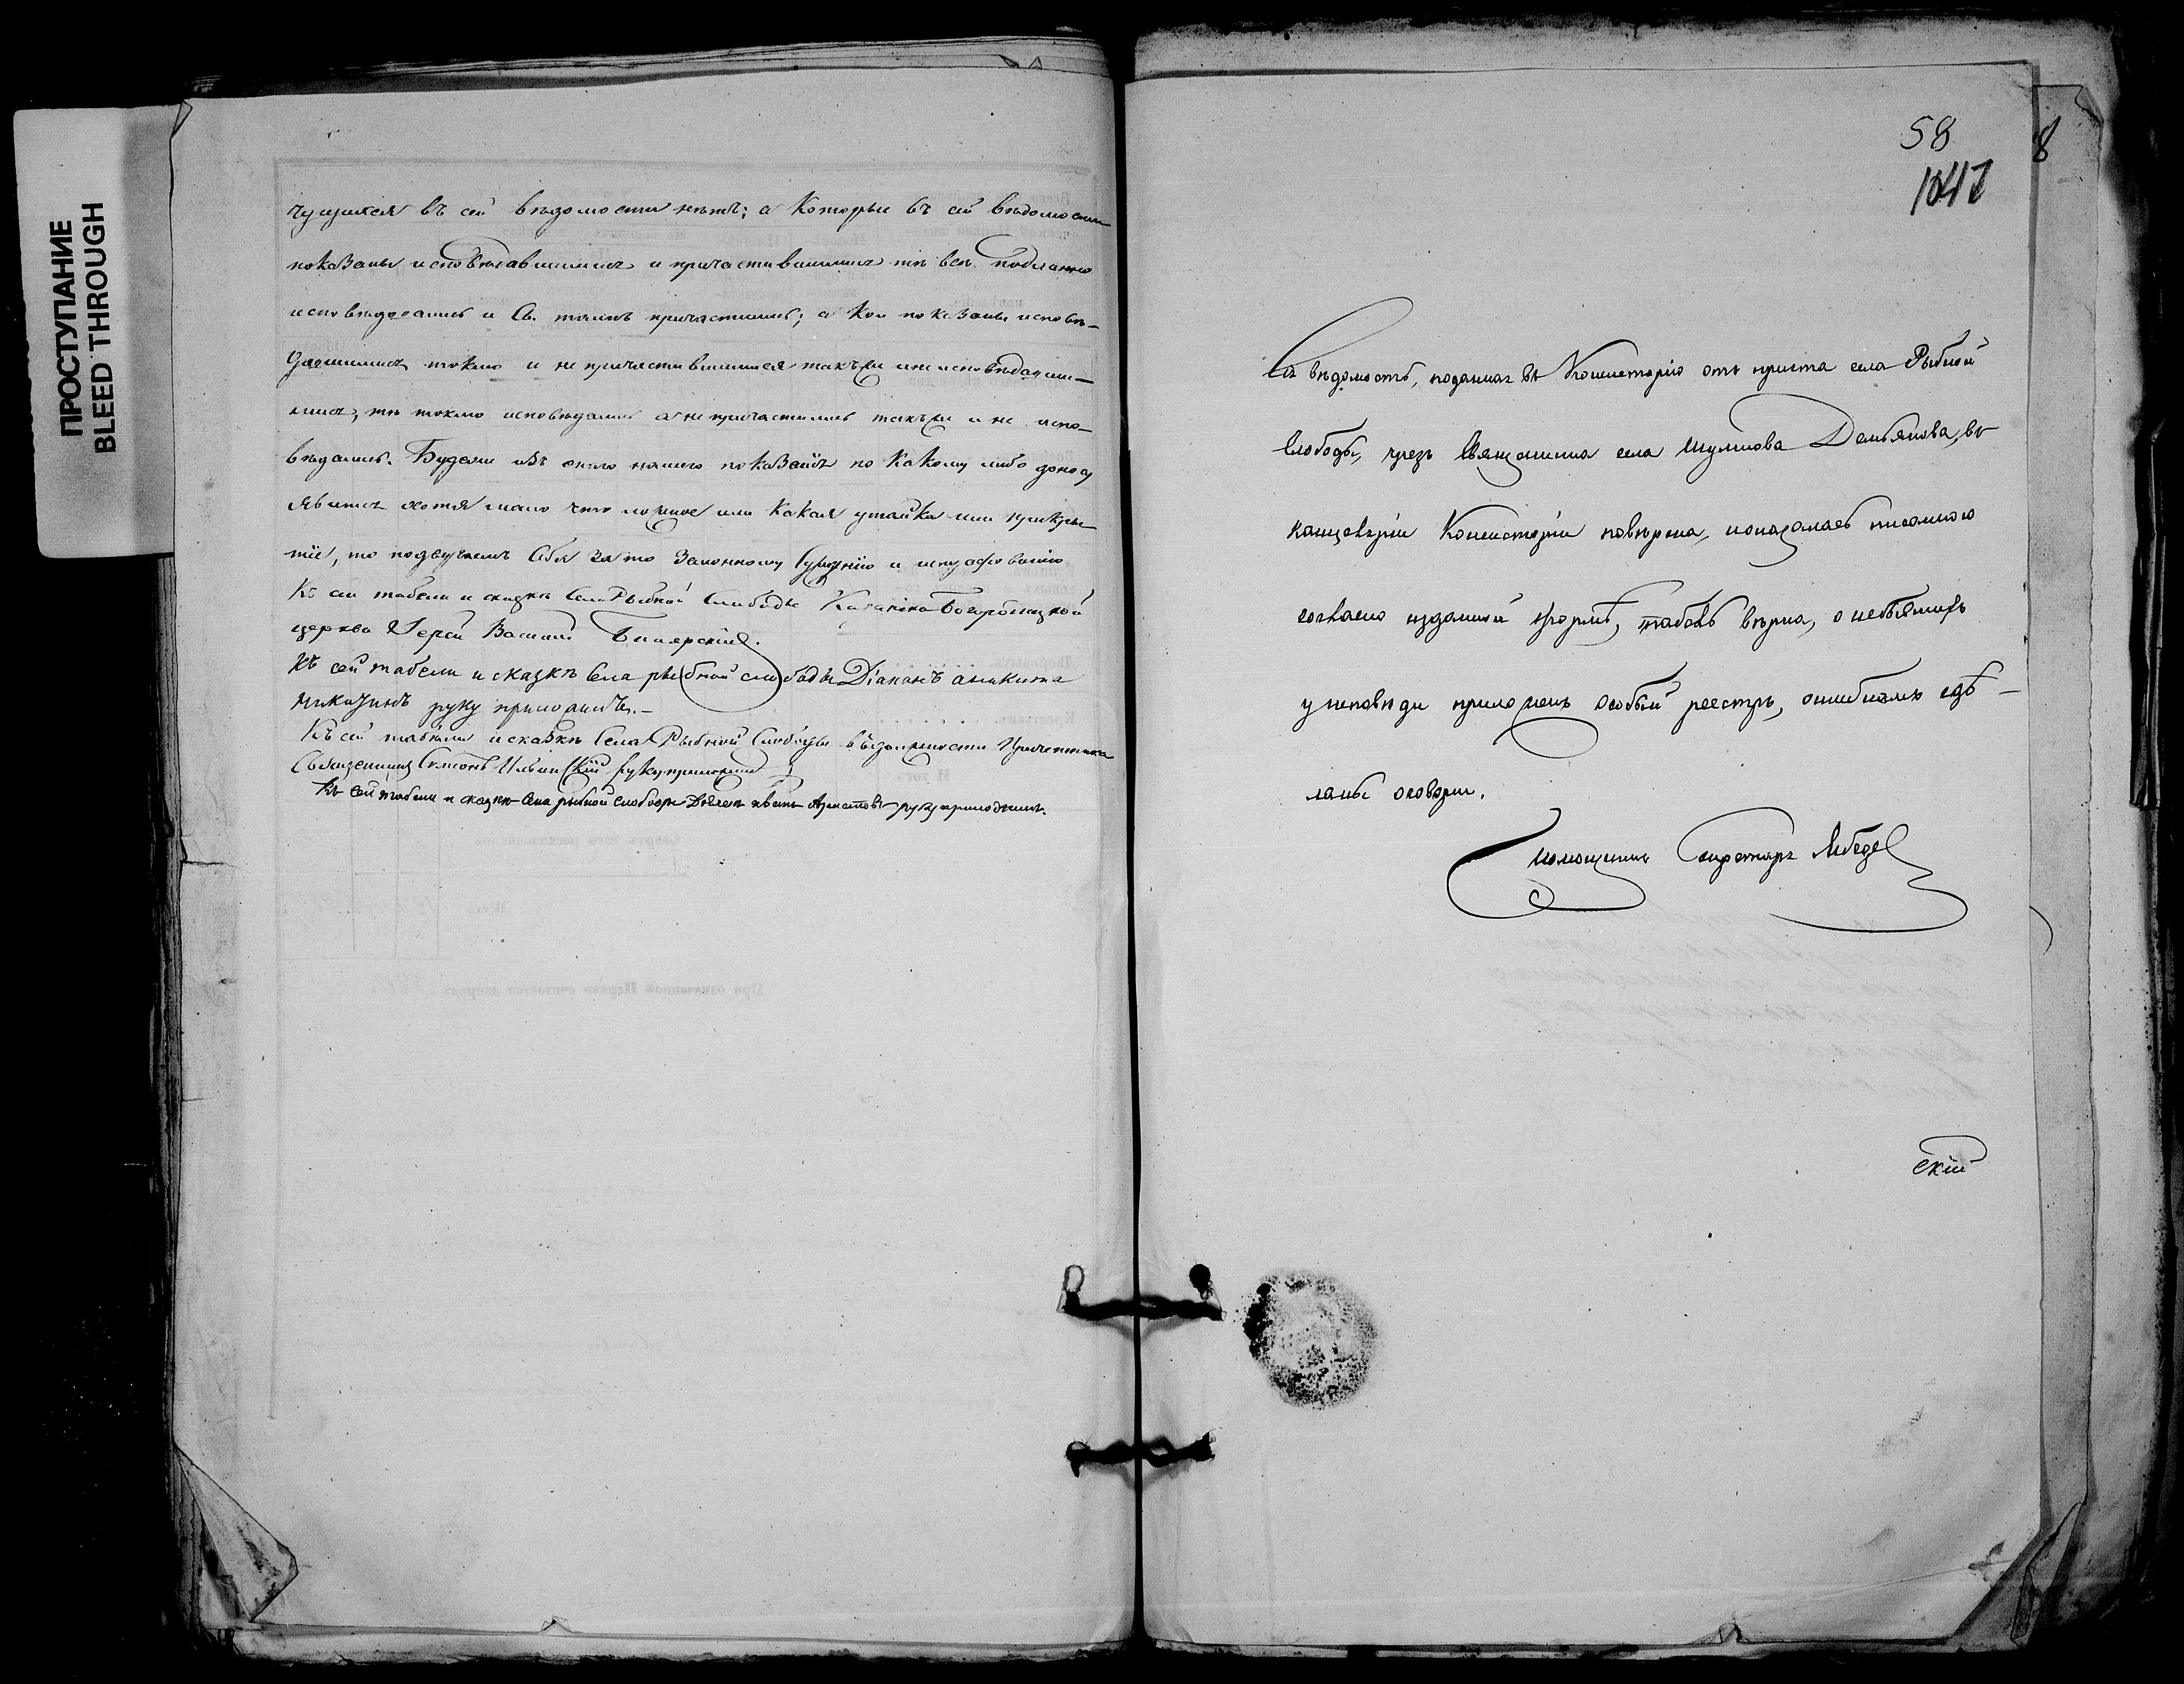 ПРОСТУПАНИЕ
BLEED THROUGH
чущихся въ сей вѣдомости нѣтъ; а которые въ сей вѣдомости
показаны исповѣдавшимись и причастившимись тѣ всѣ подлинно
исповѣдовались и Св. таинъ причастились; а кои показаны исповѣ-
давшимись токмо и не причастившимися такъ же и не исповѣдавши-
мись, тѣ токмо исповѣдались а не причастились такъ же и не испо-
вѣдались. Будели изъ сего нашего показанія по какому либо доносу
явится хотя мало что ложное или какая утайка или прикры-
тіе, то подвергаемъ себя за то законному сужденію и штрафованію
Къ сей табели и сказкѣ села Рыбной Слободы Казанско-Богородицкой
церкви Іерей Василій
Къ сей табели и сказкѣ села рыбной слободы Діаконъ аникита
руку приложилъ.
Къ сей табели и сказкѣ села Рыбной Слободы въ должности Причетника
Священникъ Ильинскій руку приложилъ
Къ сей табели и сказкѣ села рыбной слободы Дьячекъ иванъ руку приложилъ.
58
8
1047
Сія вѣдомость, поданная въ Консисторію отъ причта села Рыбной
Слободы, чрезъ Священника села Шумкова Демьянова, въ
канцеляріи Консисторіи повѣрена, и оказалась писанною
согласно изданной формѣ, табель вѣрна, о небывшихъ
у исповѣди приложенъ особый реестръ, ошибками сдѣ-
ланы оговорки.
Помощникъ Секретаря Лебеде
скій